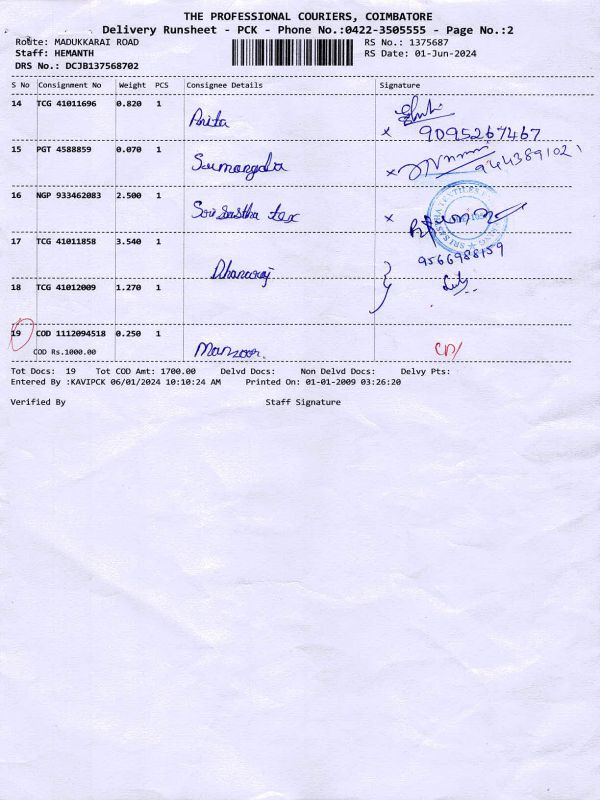 THE PROFESSIONAL COURIERS, COIMBATORE
Delivery Runsheet - PCK - Phone No.:0422-3505555 - Page No.:2
Route: MADUKKARAI ROAD
RS No.: 1375687
Staff: HEMANTH
RS Date: 01-Jun-2024
DRS No.: DCJB137568702
S No Consignment No Weight PCS Consignee Details Signature
14 TCG 41011696 0.820 1
Anita
x 9095267467
15 PGT 4588859 0.070 1
Sumangala
x 9443891021
16 NGP 933462083 2.500 1
Sri Sastha tex
x
9566988159
17 TCG 41011858 3.540 1
Dhanaraj
18 TCG 41012009 1.270 1
19 COD 1112094518 0.250 1
COD Rs.1000.00
Manzoor.
Tot Docs: 19 Tot COD Amt: 1700.00 Delvd Docs: Non Delvd Docs: Delvy Pts:
Entered By :KAVIPCK 06/01/2024 10:10:24 AM Printed On: 01-01-2009 03:26:20
Verified By Staff Signature